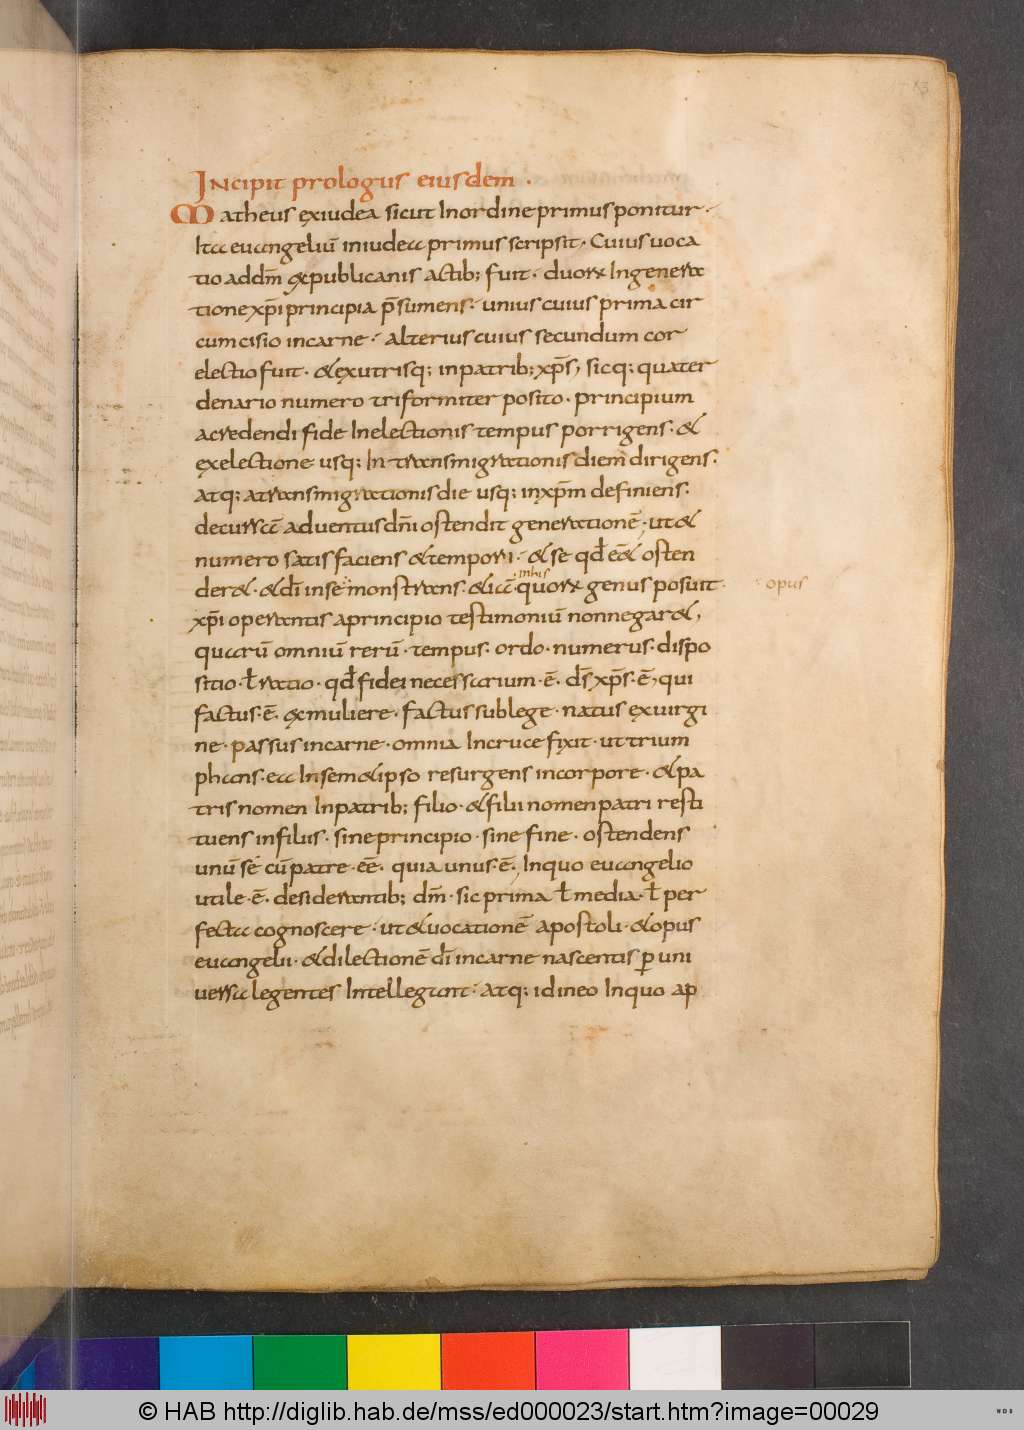 13
Incipit prologus eiusdem .
Matheus exiudea sicut Inordine primus ponitur .
Ita euangeliū iniudea primus scripsit . Cuius uoca
tio addm̄ ęxpublicanis actib; fuit . duorx Ingenera
tione xp̄i principia p̄sumens . unius cuius prima cir
cumcisio incarne . alterius cuius secundum cor
electio fuit . & exutrisq; inpatrib; xp̄s, sicq; quater
denario numero triformiter posito . principium
acredendi fide Inelectionis tempus porrigens . &
exelectione usq; In transmigrationis diem dirigens .
atq; atransmigrationis die usq; inxp̄m definiens .
decursā aduentus dn̄i ostendit generationē . ut &
numero satisfaciens & tempori . & se qđ eē& osten
der& . & dī inse monstrans . & iā . inhis quorx genus posuit . opus
xp̄i operantis aprincipio testimoniū nonnegar&,
quarū omniū rerū . tempus . ordo . numerus . dispo
sitio . ł ratio . qđ fidei necessarium . ē . ds̄ xp̄s . ē, qui
factus . ē . ęx muliere . factus sublege . natus exuirgi
ne . passus incarne . omnia Incruce fixit . ut trium
phans . ea Insem&ipso resurgens incorpore . & pa
tris nomen Inpatrib; filio . & filii nomen patri resti
tuens infiliis . sine principio . sine fine . ostendens
unū sé cū patre . eē . quia unus . ē . Inquo euangelio
utile . ē . desiderantib; dm̄ . sic prima ł media . ł per
fecta cognoscere . ut & uocationē apostoli . & opus
euangelii . & dilectionē dī incarne nascentis ꝑ uni
uersa legentes Intellegant . atq; id ineo Inquo ap
© HAB http://diglib.hab.de/mss/ed000023/start.htm?image=00029